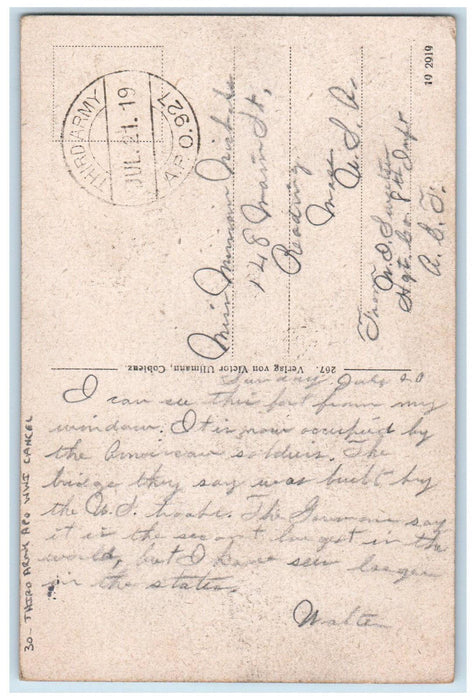 THIRD ARMY
JUL. 21. 19
A.P.O. 927
Miss Miriam
148 Main St,
Reading
Mass
U. S. A.
From W. D.
Hqt. Co. 8th Inft
A. E. F.
19 2919
267. Verlag von Victor Ullmann, Coblenz.
Sunday July 20
I can see this fort from my
window. It is now occupied by
the American soldiers. The
bridge they say was built by
the U.S. troops. The Germans say
it is the second largest in the
world, but I have seen larger
in the states.
Walter
30- THIRD ARMY APO WWI CANCEL